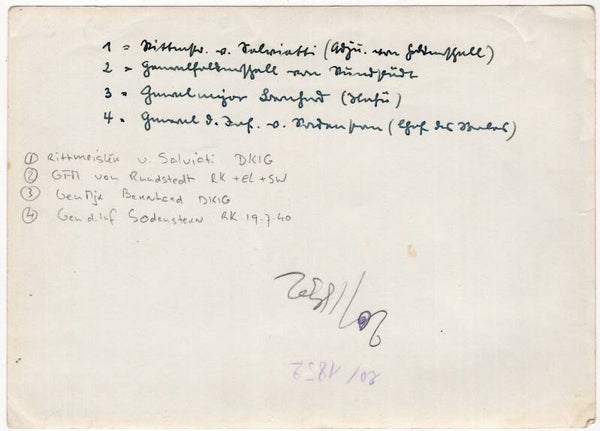 1 = Rittmstr. v. Salviatti (Adju. von Feldmschall)
2 = Generalfeldmschall von Rundstedt
3 = Generalmajor Bernhard
4 = General d. Inf. v. Sodenstern (Chef des Stabes)
① Rittmeister v. Salviati DKIG
② GFM von Rundstedt RK + EL + SW
③ GenMjr Bernhard DKIG
④ Gen d. Inf Sodenstern RK 19.7.40
20/1852
20/1852